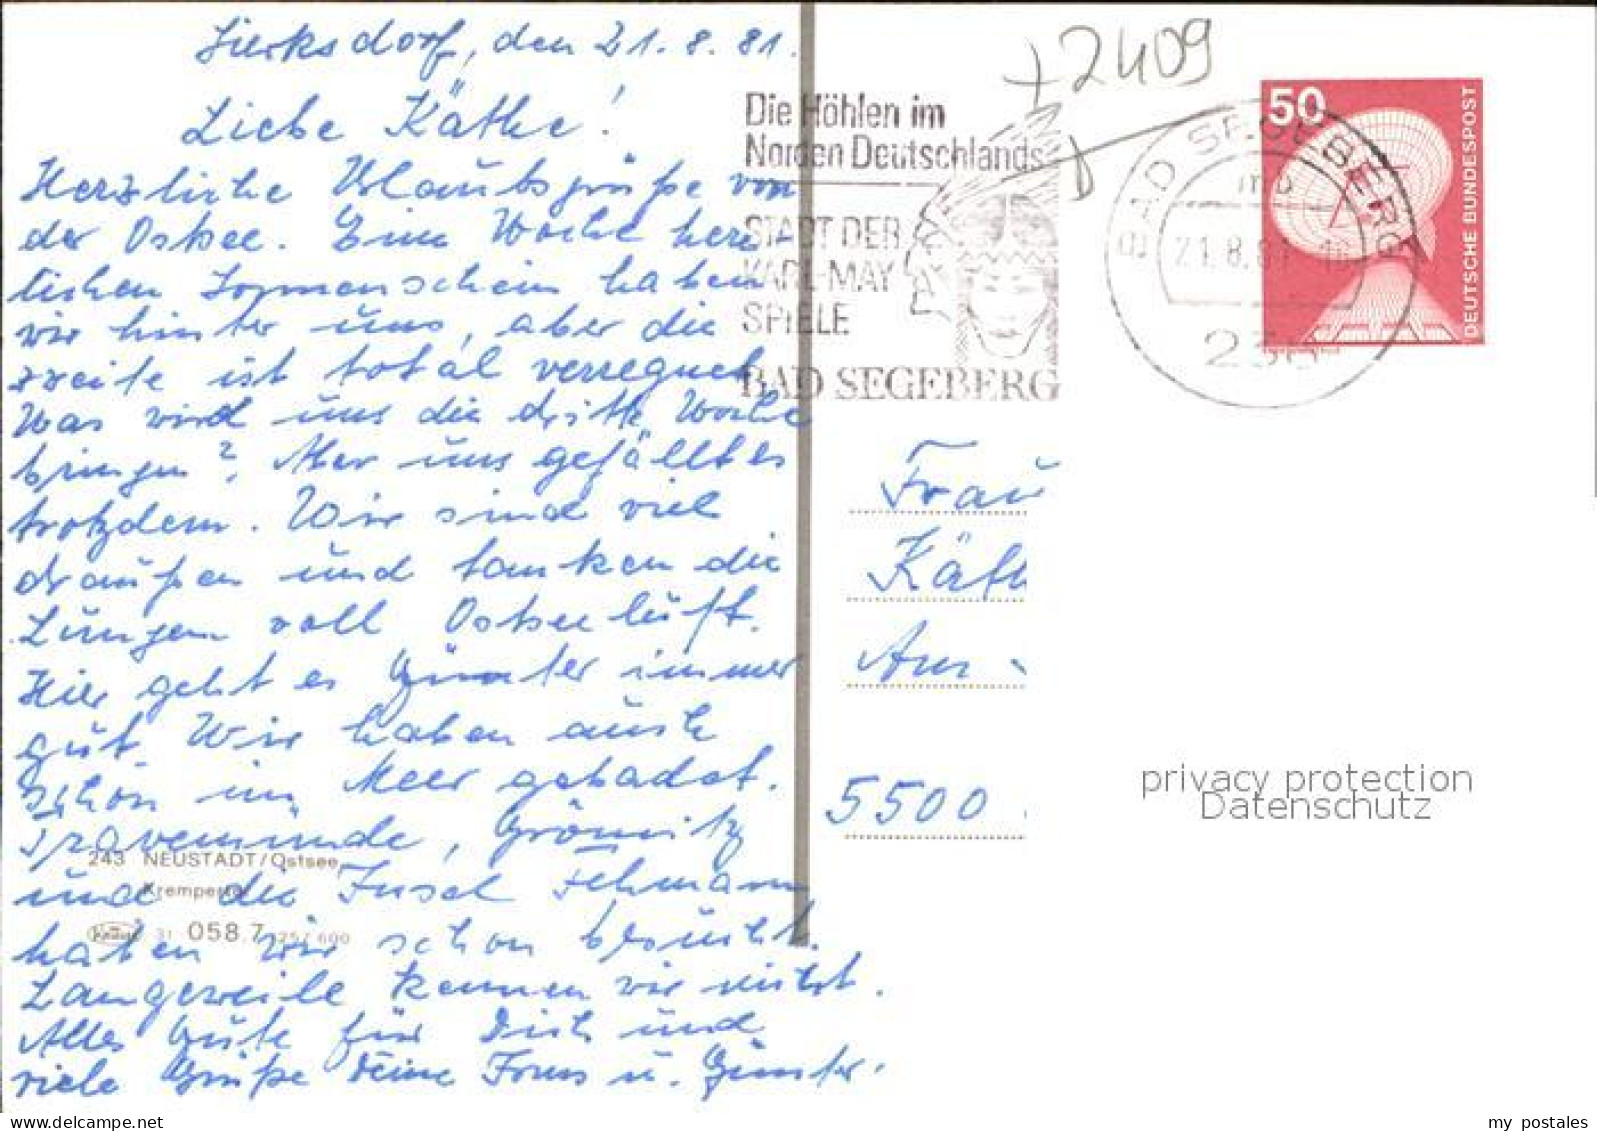 Sierksdorf, den 21.8.81.
Liebe Käthe!
Herzliche Urlaubsgrüße von
der Ostsee. Eine Woche herr-
lichen Sonnenschein haben
wir hinter uns, aber die
zweite ist total verregnet.
Was wird uns die dritte Woche
bringen? Aber uns gefällt es
trotzdem. Wir sind viel
draußen und tanken die
Lungen voll Ostseeluft.
Hier geht es Günter immer
gut. Wir haben auch
schon im Meer gebadet.
Travemünde, Grömitz
und die Insel Fehmarn
haben wir schon besucht.
Langeweile kennen wir nicht.
Alles Gute für Dich und
viele Grüße Deine u. Günter.
243 NEUSTADT/Ostsee
Kremper
058.7
+2409
Die Höhlen im
Norden Deutschlands
STADT DER
KARL-MAY
SPIELE
BAD SEGEBERG
BAD SEGEBERG
21.8.81
50
DEUTSCHE BUNDESPOST
Frau
Käth
Am
5500
privacy protection
Datenschutz
my postales